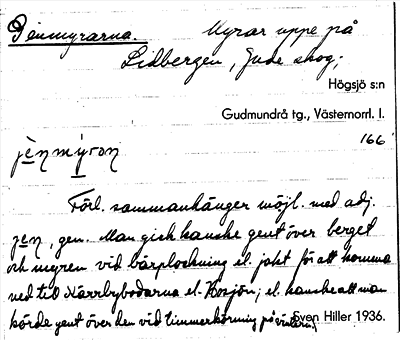 Denmyrarna. Myrar uppe på
Lidbergen, Gude skog;
Högsjö s:n
Gudmundrå tg., Västernorrl. l.
166
jènmýron
Förl. sammanhänger möjl. med adj.
jen, gen. Man gick kanske gent över berget
och myren vid bärplockning el. jakt för att komma
ned till Kärrbybodarna el. Hosjön; el. kanske att man
körde gent över den vid timmerkörning på vintern.
Sven Hiller 1936.